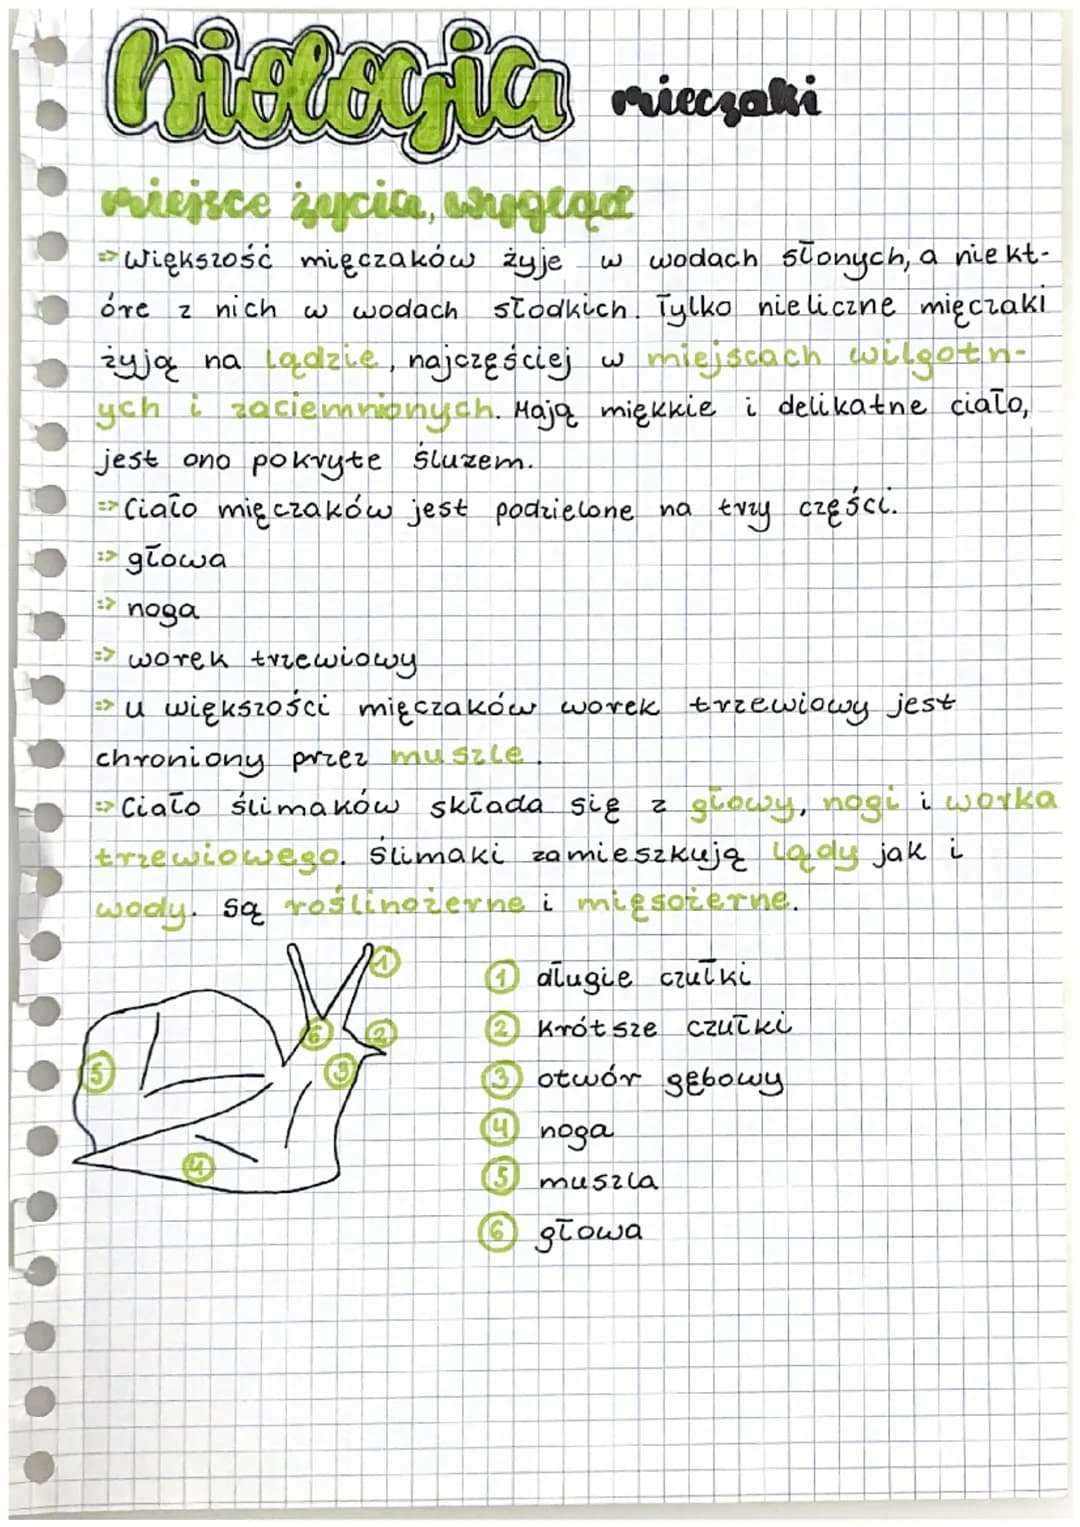 biologia mięczaki
miejsce życia, wygląd
=> Większość mięczaków żyje w wodach słonych, a niekt-
óre z nich w wodach słodkich. Tylko nieliczne mięczaki
żyją na lądzie, najczęściej w miejscach wilgotn-
ych i zaciemnionych. Mają miękkie i delikatne ciało,
jest ono pokryte śluzem.
=> Ciało mięczaków jest podzielone na trzy części.
=> głowa
=> noga
=> worek trzewiowy
=> u większości mięczaków worek trzewiowy jest
chroniony przez muszle.
=> Ciało ślimaków składa się z głowy, nogi i worka
trzewiowego. Ślimaki zamieszkują lądy jak i
wody. Są roślinożerne i mięsożerne.
1
6
2
3
5
4
1 długie czułki
2 krótsze czułki
3 otwór gębowy
4 noga
5 muszla
6 głowa